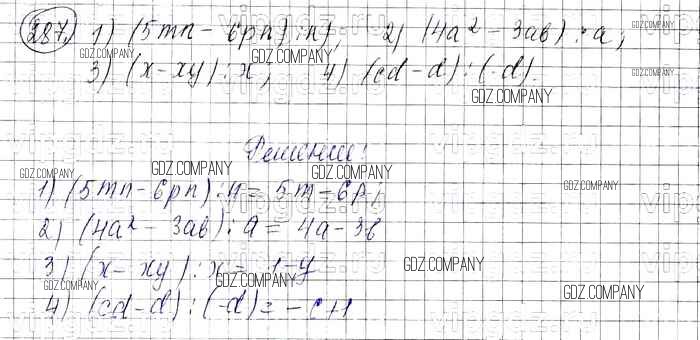 287. 1) (5mn - 6pn) : n, 2) (4a² - 3ab) : a;
3) (x - xy) : x, 4) (cd - d) : (-d).
Решение:
1) (5mn - 6pn) : n = 5m - 6p;
2) (4a² - 3ab) : a = 4a - 3b
3) (x - xy) : x = 1 - y
4) (cd - d) : (-d) = -c + 1
GDZ.COMPANY
GDZ.COMPANY
GDZ.COMPANY
GDZ.COMPANY
GDZ.COMPANY
GDZ.COMPANY
GDZ.COMPANY
GDZ.COMPANY
GDZ.COMPANY
GDZ.COMPANY
GDZ.COMPANY
GDZ.COMPANY